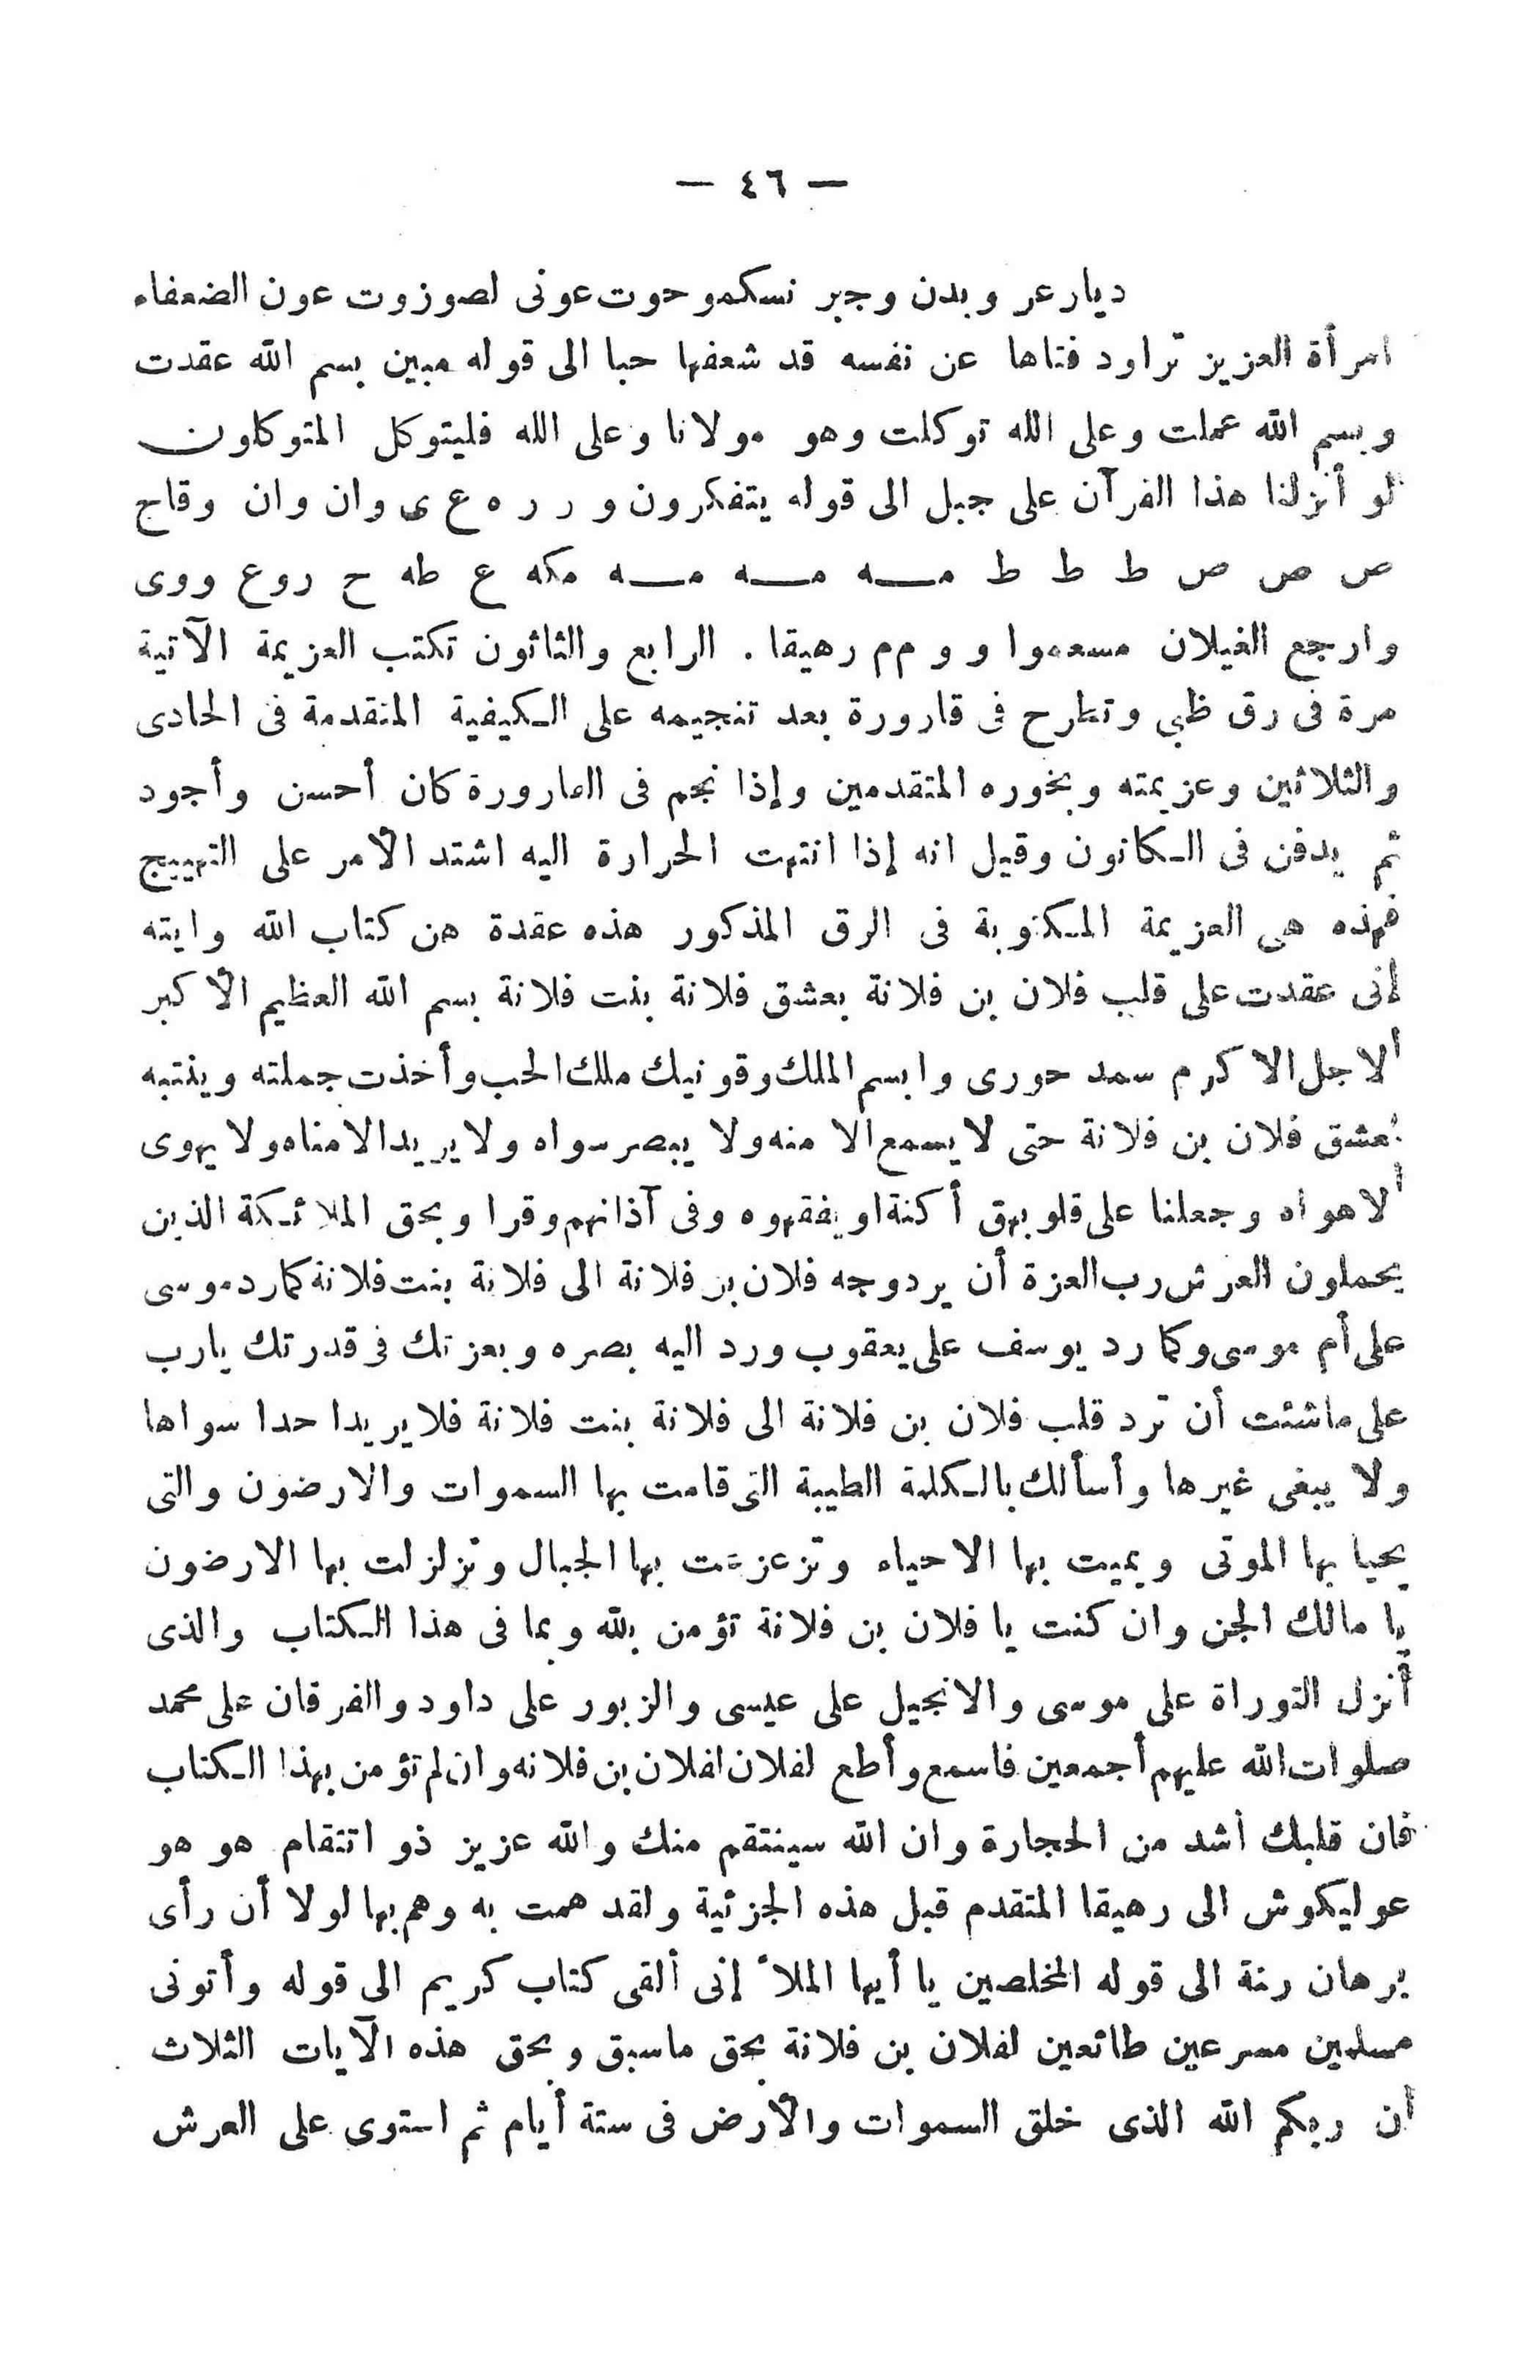 — ٤٦ —
ديارعر وبدن وجبر نسكمو حوت عونى لصوزوت عون الضعفاء
امرأة العزيز تراود فتاها عن نفسه قد شعفها حبا الى قوله مبين بسم الله عقدت
وبسم الله عملت وعلى الله توكلت وهو مولانا وعلى الله فليتوكل المتوكلون
لو أنزلنا هذا القرآن على جبل الى قوله يتفكرون و ر ر ه ع ى وان وان وقاج
ص ص ص ط ط ط مـــه مـــه مـــه مكه ع طه ح روع ووى
وارجع الغيلان مسعموا و و م م رهيقا . الرابع والثاثون تكتب العزيمة الآتية
مرة فى رق ظبي وتطرح فى قارورة بعد تنجيمه على الكيفية المتقدمة فى الحادى
والثلاثين وعزيمته وبخوره المتقدمين وإذا نجم فى القارورة كان أحسن وأجود
ثم يدفن فى الكانون وقيل انه إذا انتهت الحرارة اليه اشتد الأمر على التهييج
فهذه هى العزيمة المكتوبة فى الرق المذكور هذه عقدة من كتاب الله وايته
إنى عقدت على قلب فلان بن فلانة بعشق فلانة بنت فلانة بسم الله العظيم الأكبر
ألاجل الاكرم سمد حورى وابسم الملك وقونيك ملك الحب وأخذت جملته وينتبه
بعشق فلان بن فلانة حتى لا يسمع الا منه ولا يبصر سواه ولا يريد الا مناه ولا يهوى
ألاهواه وجعلنا على قلوبهق أكنة او يفقهوه وفى آذانهم وقرا وبحق الملائكة الذين
يحملون العرش رب العزة أن يرد وجه فلان بن فلانة الى فلانة بنت فلانة كما رد موسى
على أم موسى وكما رد يوسف على يعقوب ورد اليه بصره وبعزتك فى قدرتك يارب
على ماشئت أن ترد قلب فلان بن فلانة الى فلانة بنت فلانة فلا يريدا حدا سواها
ولا يبغى غيرها وأسألك بالكلمة الطيبة التى قامت بها السموات والارضون والتى
يحيا بها الموتى ويميت بها الاحياء وتزعزعت بها الجبال وتزلزلت بها الارضون
يا مالك الجن وان كنت يا فلان بن فلانة تؤمن بلله وبما فى هذا الكتاب والذى
أنزل التوراة على موسى والانجيل على عيسى والزبور على داود والفرقان على محمد
صلوات الله عليهم أجمعين فاسمع وأطع لفلان لفلان بن فلانه وان لم تؤمن بهذا الكتاب
فان قلبك أشد من الحجارة وان الله سينتقم منك والله عزيز ذو انتقام هو هو
عو ليكوش الى رهيقا المتقدم قبل هذه الجزئية ولقد همت به وهم بها لولا أن رأى
برهان ربة الى قوله المخلصين يا أيها الملأ إنى ألقى كتاب كريم الى قوله وأتونى
مسلمين مسرعين طائعين لفلان بن فلانة بحق ماسبق وبحق هذه الآيات الثلاث
أن ربكم الله الذى خلق السموات والأرض فى ستة أيام ثم استوى على العرش